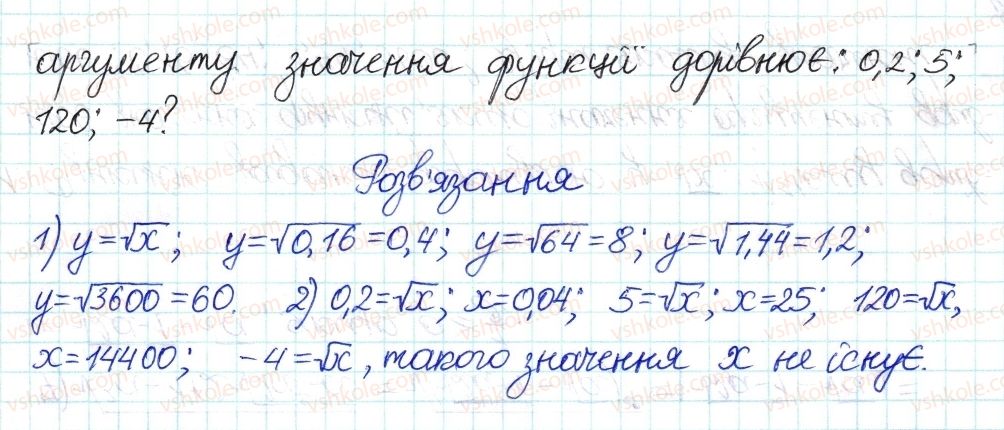 аргументу значення функції дорівнює: 0,2; 5;
120; −4?
Розв'язання
1) y=√x; y=√0,16=0,4; y=√64=8; y=√1,44=1,2;
y=√3600=60. 2) 0,2=√x; x=0,04; 5=√x; x=25; 120=√x,
x=14400; −4=√x, такого значення x не існує.